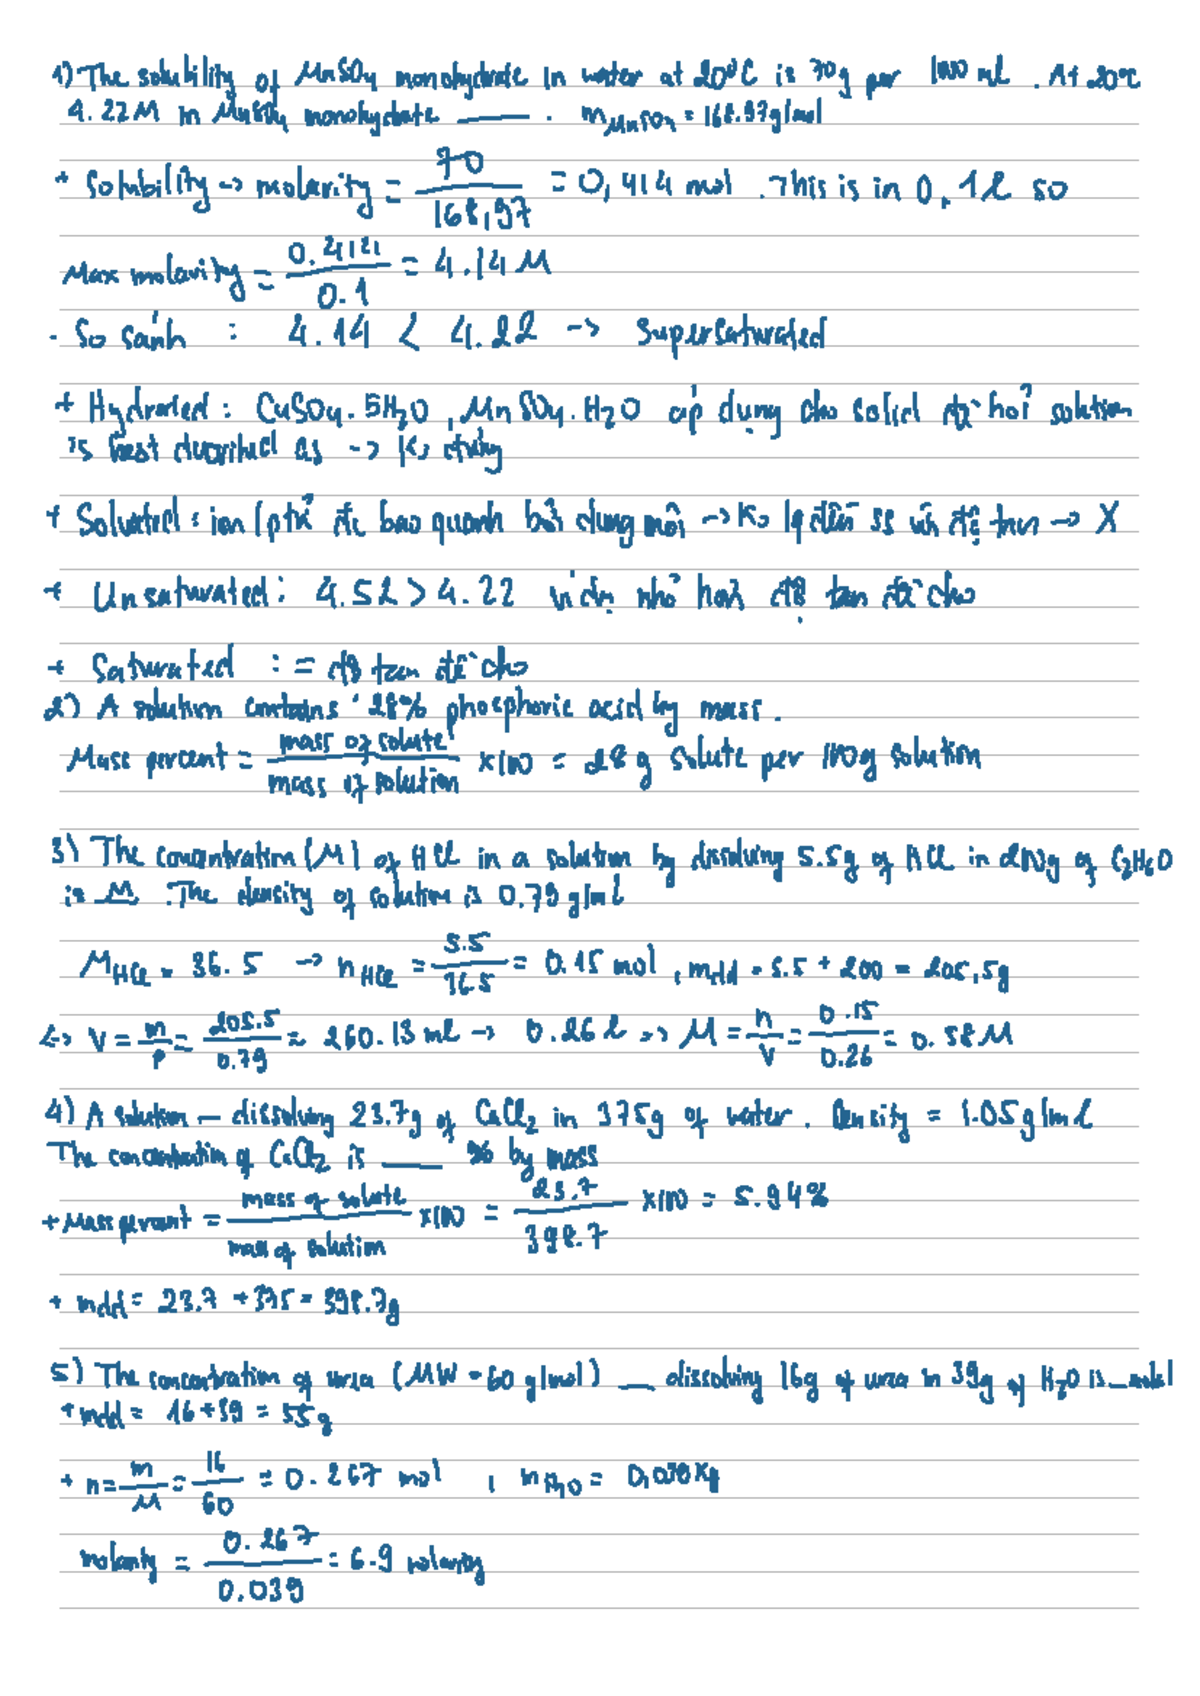 1) The solubility of MnSO4 monohydrate in water at 20°C is 70g per 100 ml . At 20°C
4.22M in MnSO4 monohydrate ____ . mMnSO4 = 168.97g/mol
+ Solubility -> molarity = 70 / 168,97 = 0,414 mol . This is in 0,1l so
Max molarity = 0.414 / 0.1 = 4.14 M
- So sánh : 4.14 < 4.22 -> Supersaturated
+ Hydrated : CuSO4.5H2O , MnSO4.H2O áp dụng cho solid đề hỏi solution
is best described as -> Ko đúng
+ Solvated : ion/ptử đc bao quanh bởi dung môi -> Ko lq đến ss với độ tan -> X
+ Unsaturated : 4.52 > 4.22 ví dụ nhỏ hơn độ tan đề cho
+ Saturated : = độ tan đề cho
2) A solution contains 28% phosphoric acid by mass .
Mass percent = mass of solute / mass of solution x100 = 28 g solute per 100g solution
3) The concentration (M) of HCl in a solution by dissolving 5.5g of HCl in 200g of C2H6O
is M . The density of solution is 0.79 g/ml
MHCl = 36.5 -> nHCl = 5.5 / 36.5 = 0.15 mol , mdd = 5.5 + 200 = 205,5g
<-> V = m / ρ = 205.5 / 0.79 = 260.13 ml -> 0.26 l => M = n / V = 0.15 / 0.26 = 0.58M
4) A solution — dissolving 23.7g of CaCl2 in 375g of water . Density = 1.05g/ml
The concentration of CaCl2 is ____ % by mass
+ Mass percent = mass of solute / mass of solution x100 = 23.7 / 398.7 x100 = 5.94%
+ mdd = 23.7 + 375 = 398.7g
5) The concentration of urea (MW = 60 g/mol) __ dissolving 16g of urea in 39g of H2O is _ molal
+ mdd = 16+39 = 55g
+ n = m / M = 16 / 60 = 0.267 mol , mH2O = 0,039Kg
molarity = 0.267 / 0.039 = 6.9 molarity